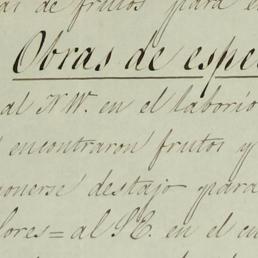 de frutos para e
Obras de espe
al N.W. en el laborío
encontraron frutos y
ponerse destajo para
lores = al S.E. en el cu